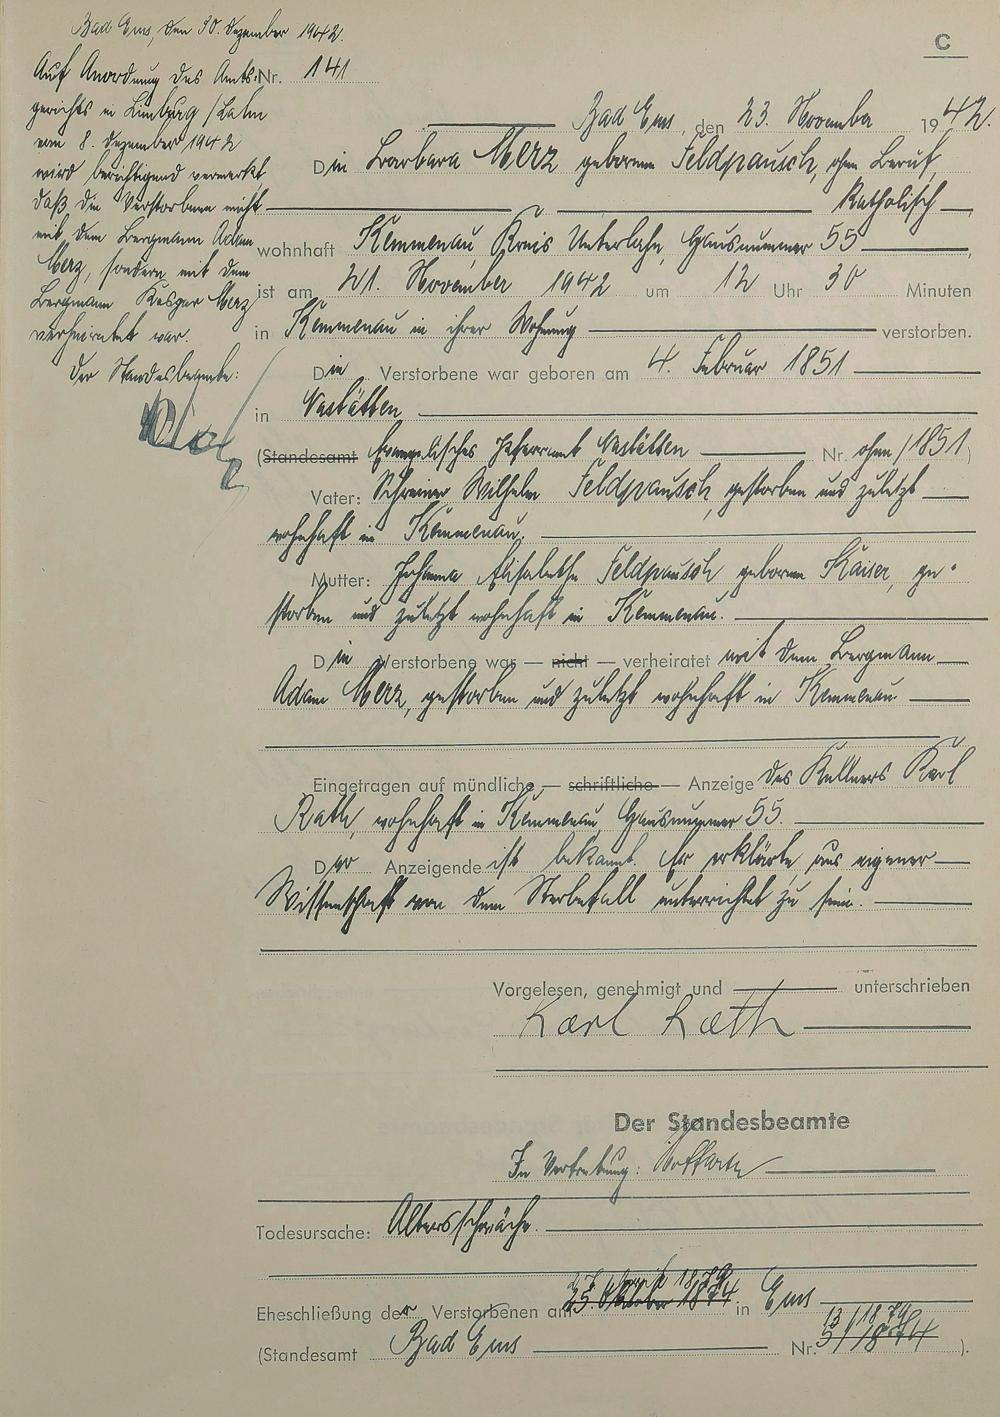 Bad Ems, den 30. Dezember 1942.
Auf Anordnung des Amts-
gerichts in Limburg/Lahn
vom 8. Dezember 1942
wird berichtigend vermerkt,
daß die Verstorbene nicht
mit dem Bergmann Adam
Merz, sondern mit dem
Bergmann Kaspar Merz
verheiratet war.
Der Standesbeamte:
C
Nr. 141
Bad Ems, den 23. November 1942.
Die Barbara Merz geborene Feldpausch, ohne Beruf,
Katholisch
wohnhaft Kemmenau, Kreis Unterlahn, Hausnummer 55
ist am 21. November 1942 um 12 Uhr 30 Minuten
in Kemmenau in ihrer Wohnung verstorben.
Die Verstorbene war geboren am 4. Februar 1851
in Nastätten
(Standesamt Evangelisches Pfarramt Nastätten Nr. ohne/1851)
Vater: Schreiner Wilhelm Feldpausch, gestorben und zuletzt
wohnhaft in Kemmenau.
Mutter: Johanna Elisabethe Feldpausch geborene Kaiser, ge-
storben und zuletzt wohnhaft in Kemmenau.
Die Verstorbene war — nicht — verheiratet mit dem Bergmann
Adam Merz, gestorben und zuletzt wohnhaft in Kemmenau
Eingetragen auf mündliche — schriftliche — Anzeige des Kellners Karl
Rath, wohnhaft in Kemmenau, Hausnummer 55.
Der Anzeigende ist bekannt. Er erklärte, aus eigener
Wissenschaft von dem Sterbefall unterrichtet zu sein.
Vorgelesen, genehmigt und unterschrieben
Karl Rath
Der Standesbeamte
In Vertretung:
Todesursache: Altersschwäche.
Eheschließung der Verstorbenen am 25. Oktober 1874 in Ems
13/1879
(Standesamt Bad Ems Nr. ).